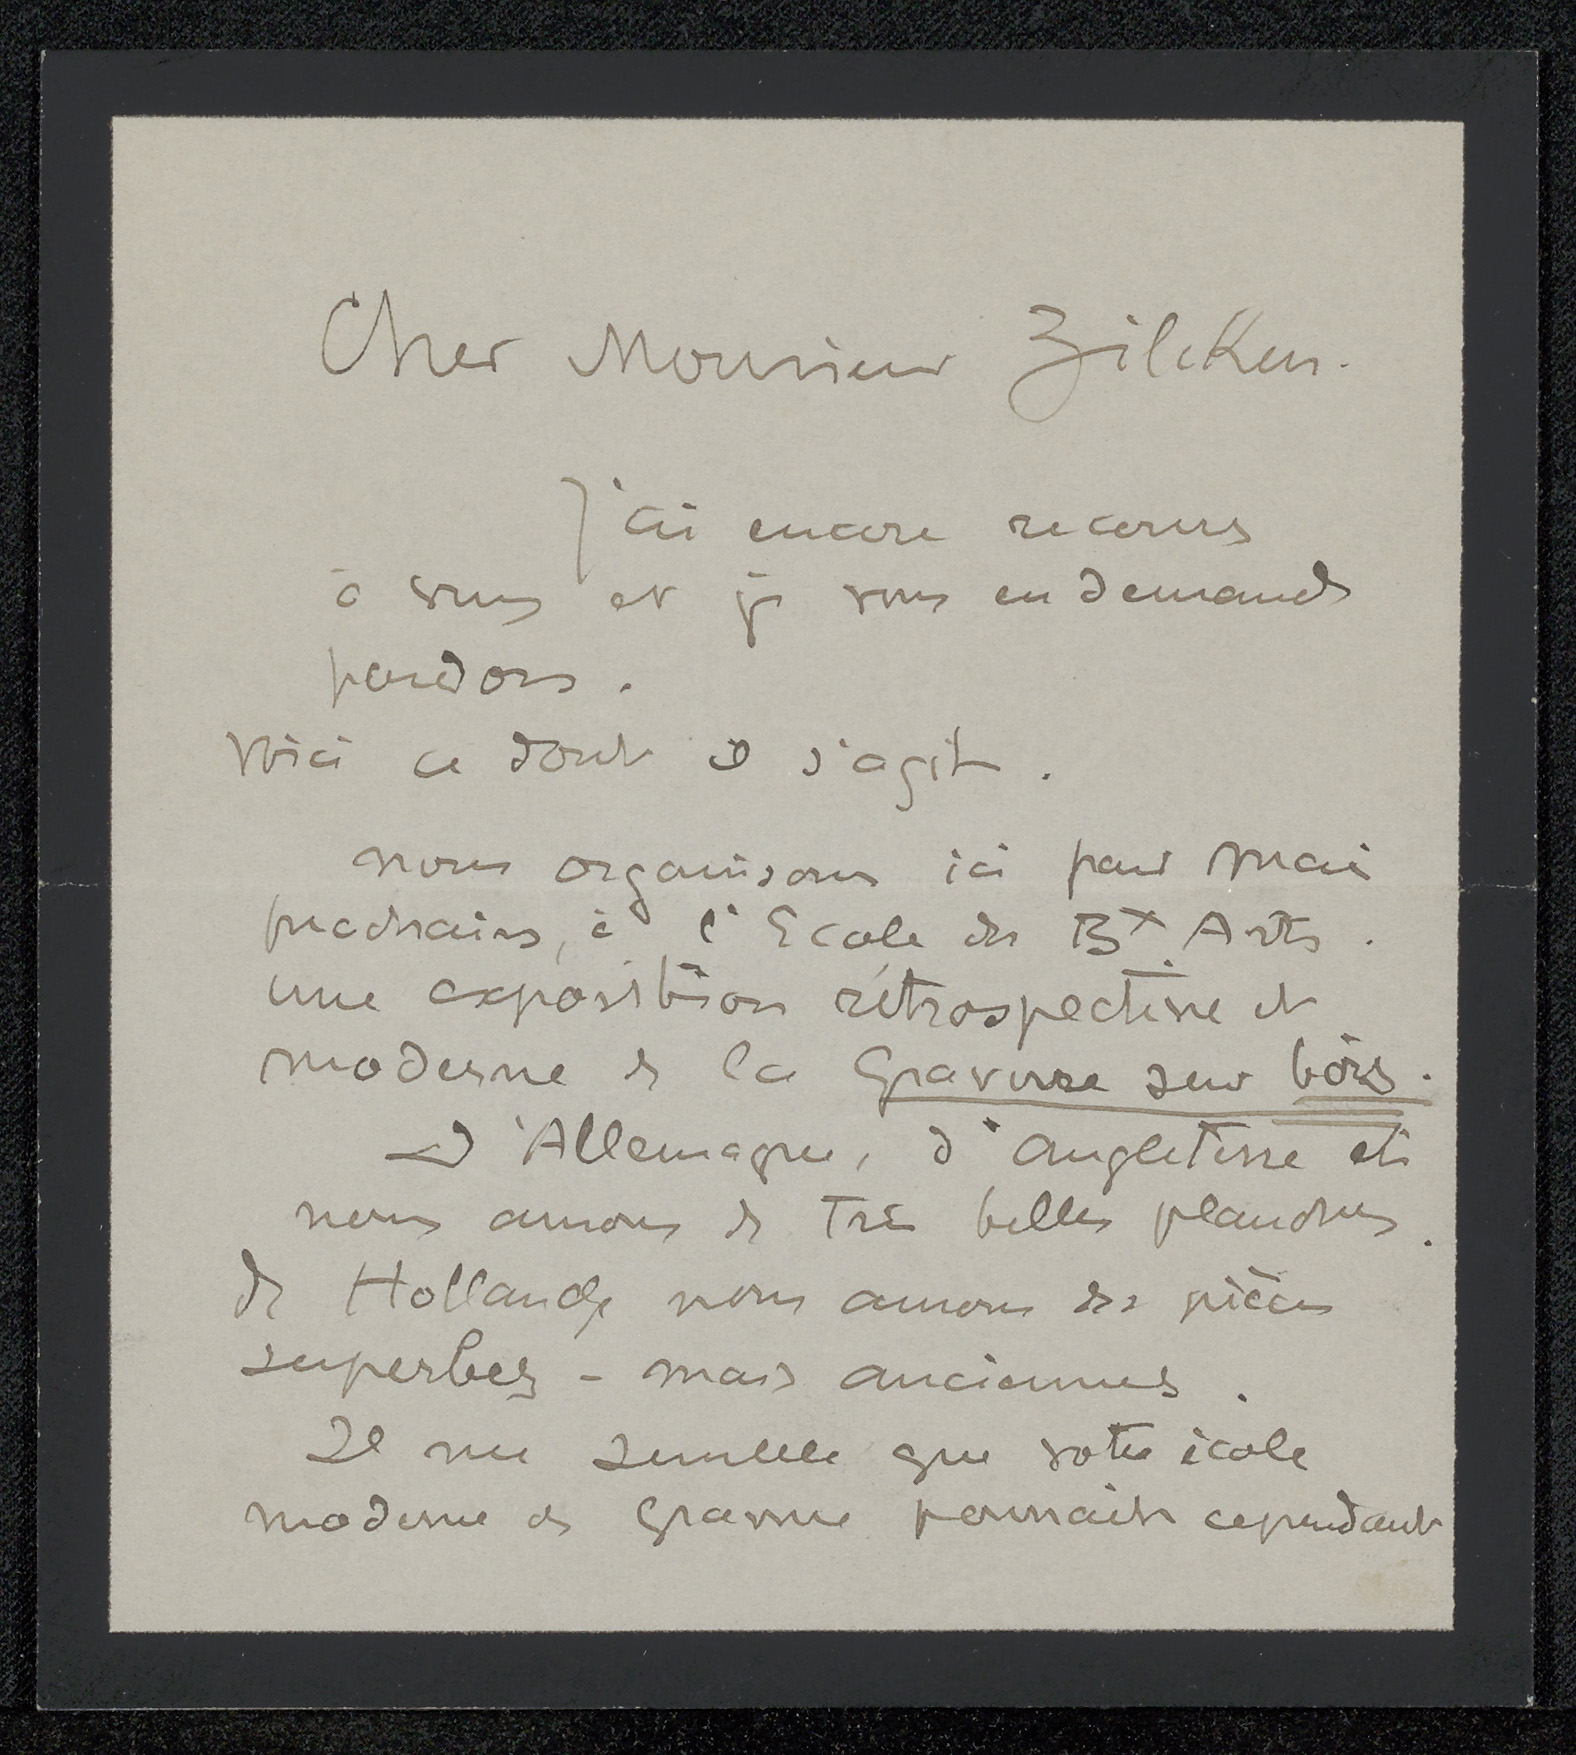 Cher Monsieur Zilcken.
J'ai encore recours
à vous et je vous en demande
pardon.
Voici ce dont il s'agit.
nous organisons ici pour Mai
prochain, à l'Ecole des Bx Arts.
une exposition rétrospective et
moderne de la Gravure sur bois.
D'Allemagne, d'angleterre et
nous aurons de Très belles planches.
de Hollande nous aurons des pièces
superbes - mais anciennes.
Il me semble que votre école
moderne de Gravure pourrait cependant